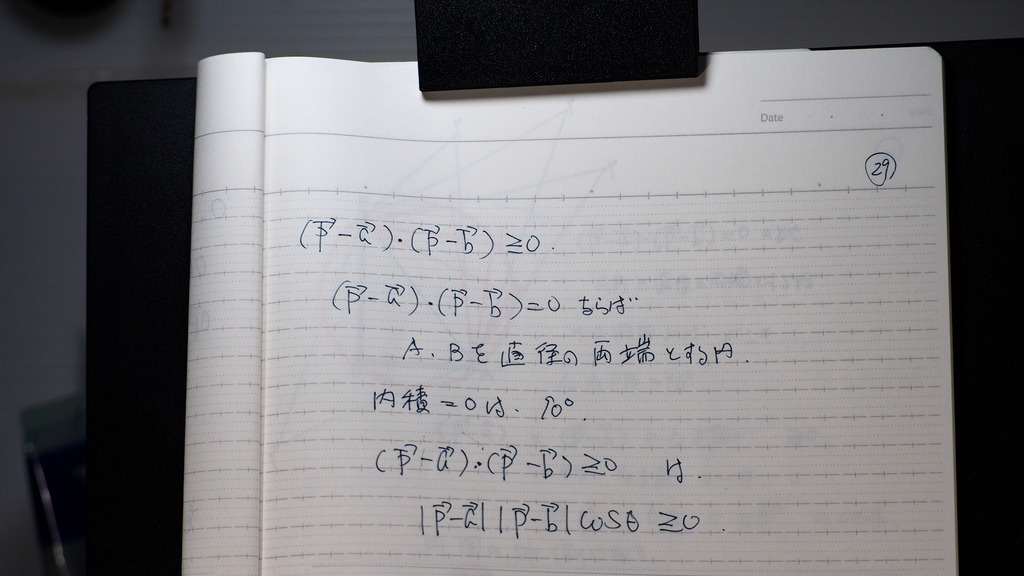 Date
29
(p⃗−a⃗)・(p⃗−b⃗)≧0.
(p⃗−a⃗)・(p⃗−b⃗)=0 ならば
A.Bを直径の両端とする円.
内積=0は.90°.
(p⃗−a⃗)・(p⃗−b⃗)≧0 は.
|p⃗−a⃗||p⃗−b⃗|cosθ ≧0.